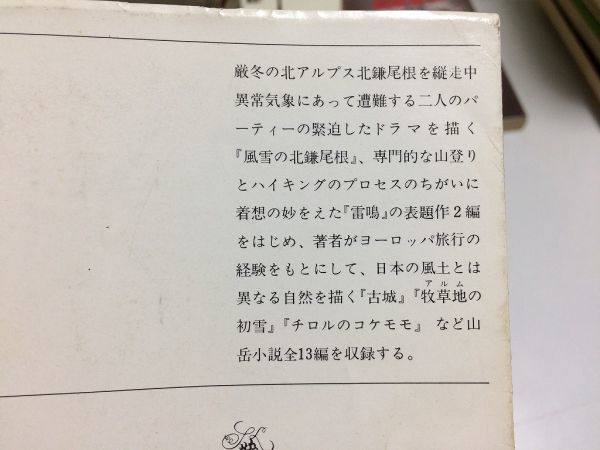 厳冬の北アルプス北鎌尾根を縦走中
異常気象にあって遭難する二人のパ
ーティーの緊迫したドラマを描く
『風雪の北鎌尾根』、専門的な山登り
とハイキングのプロセスのちがいに
着想の妙をえた『雷鳴』の表題作2編
をはじめ、著者がヨーロッパ旅行の
経験をもとにして、日本の風土とは
アルム
異なる自然を描く『古城』『牧草地の
初雪』『チロルのコケモモ』など山
岳小説全13編を収録する。